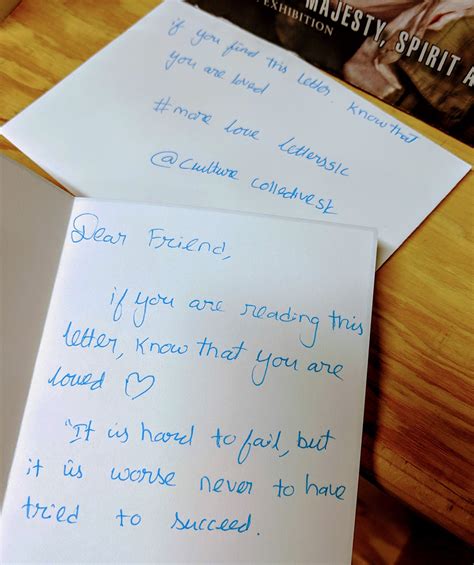 MAJESTY, SPIRIT A
EXHIBITION
if you find this letter. Know that
you are loved
#more love lettersslc
@culture collectivesk
Dear Friend,
if you are reading this
letter, know that you are
loved ♡
"It is hard to fail, but
it is worse never to have
tried to succeed.